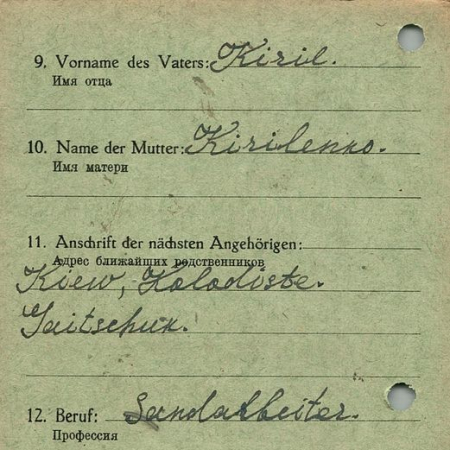 9. Vorname des Vaters: Kiril.
Имя отца
10. Name der Mutter: Kirilenko.
Имя матери
11. Anschrift der nächsten Angehörigen:
Адрес ближайших родственников
Kiew, Kolodiste.
Gaitschuk.
12. Beruf: Landarbeiter.
Профессия